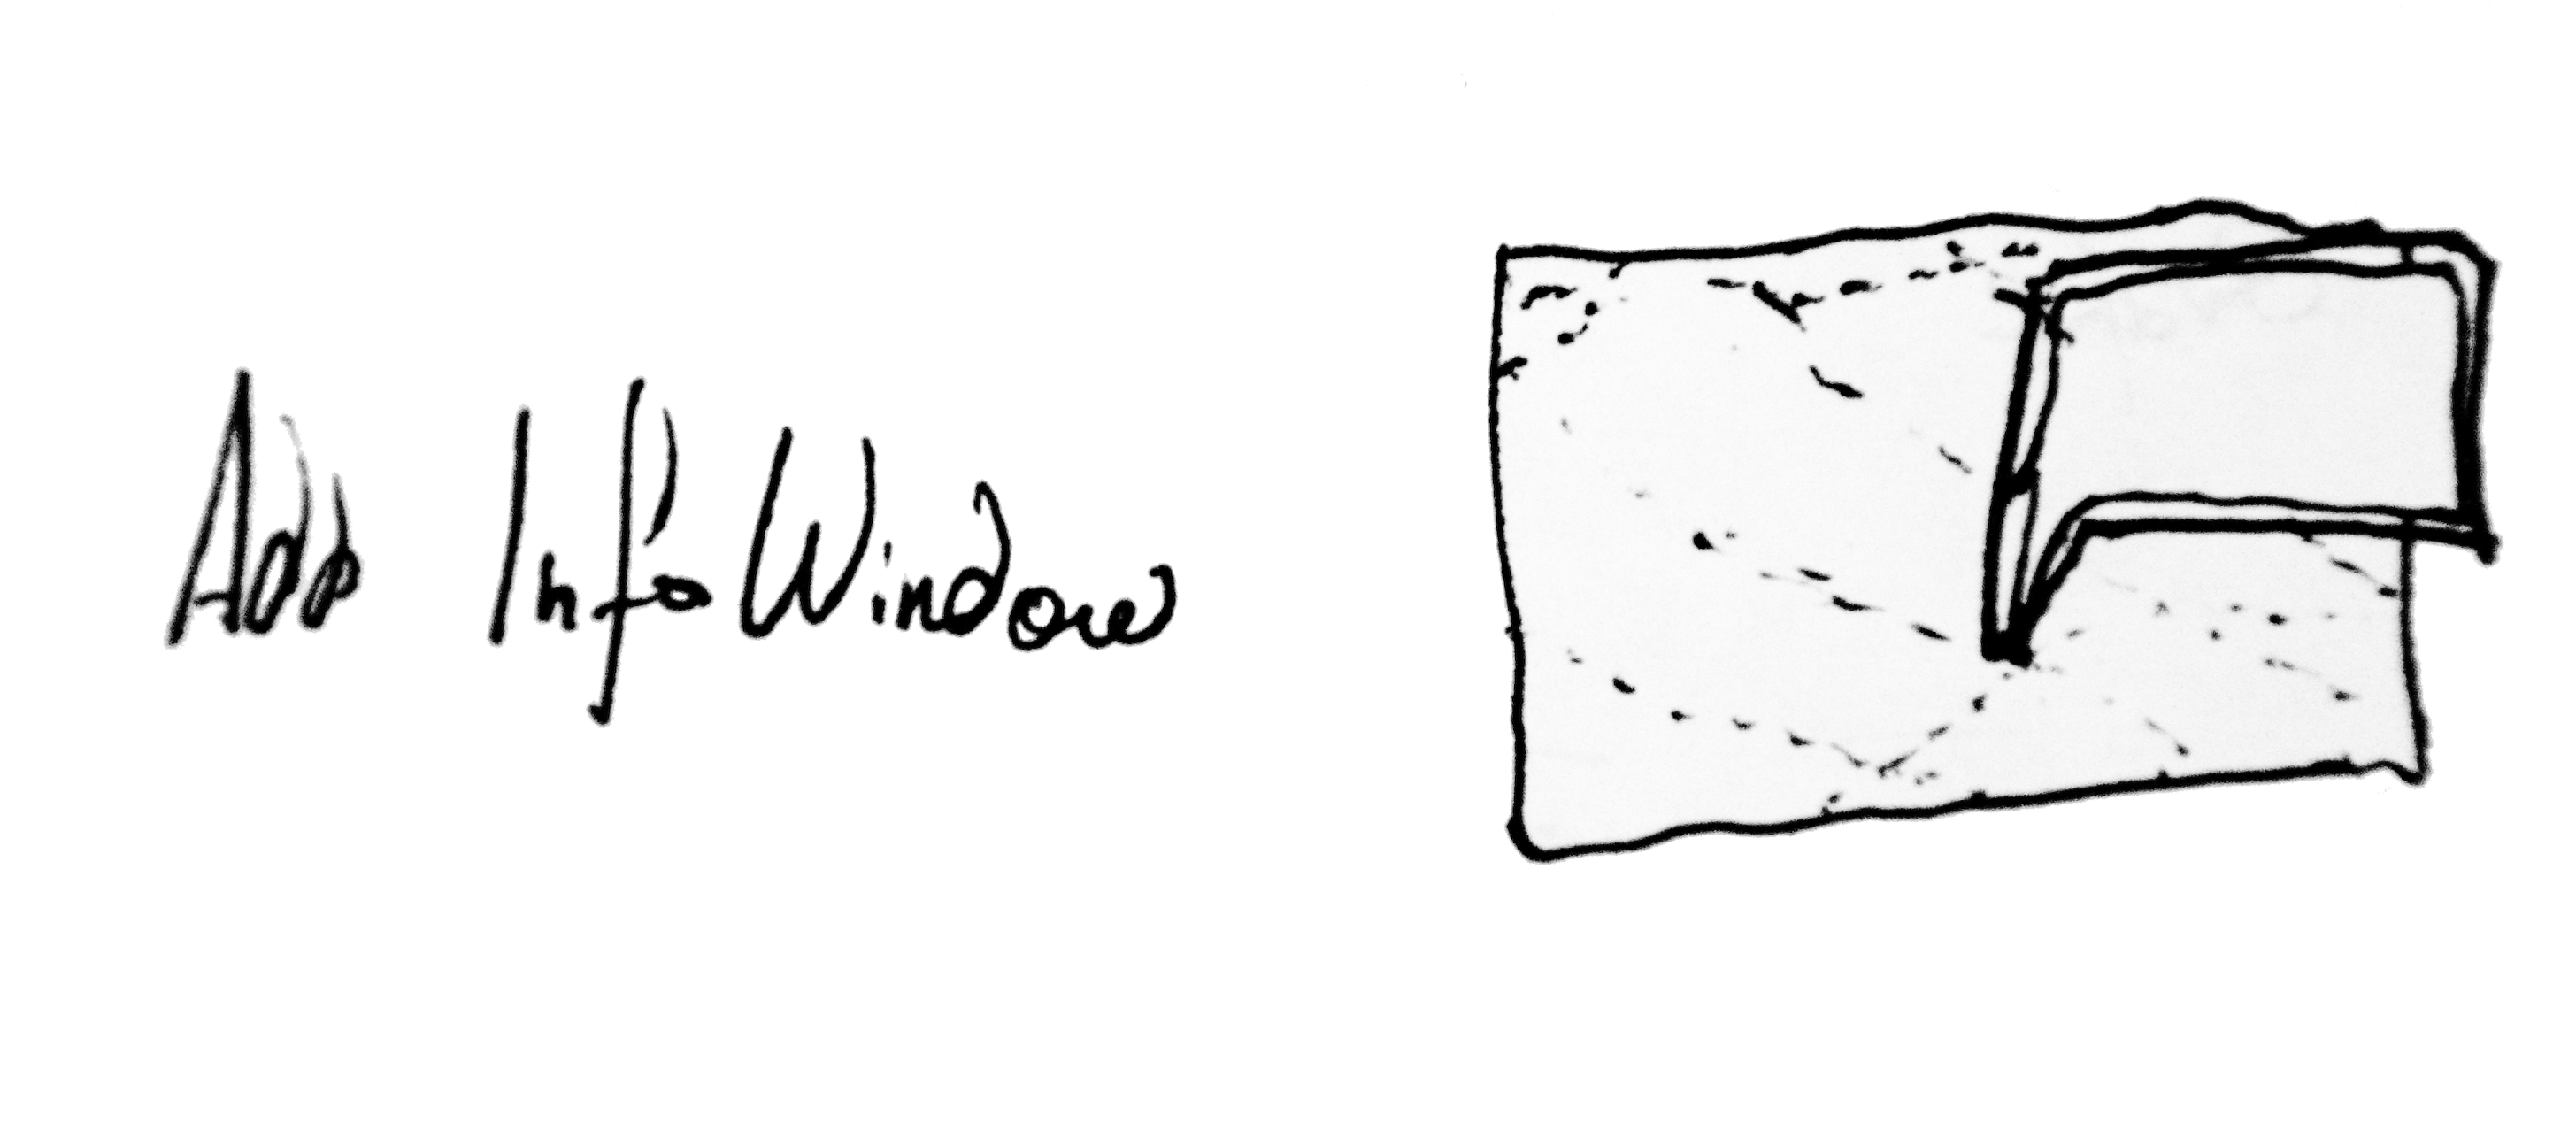 Add InfoWindow